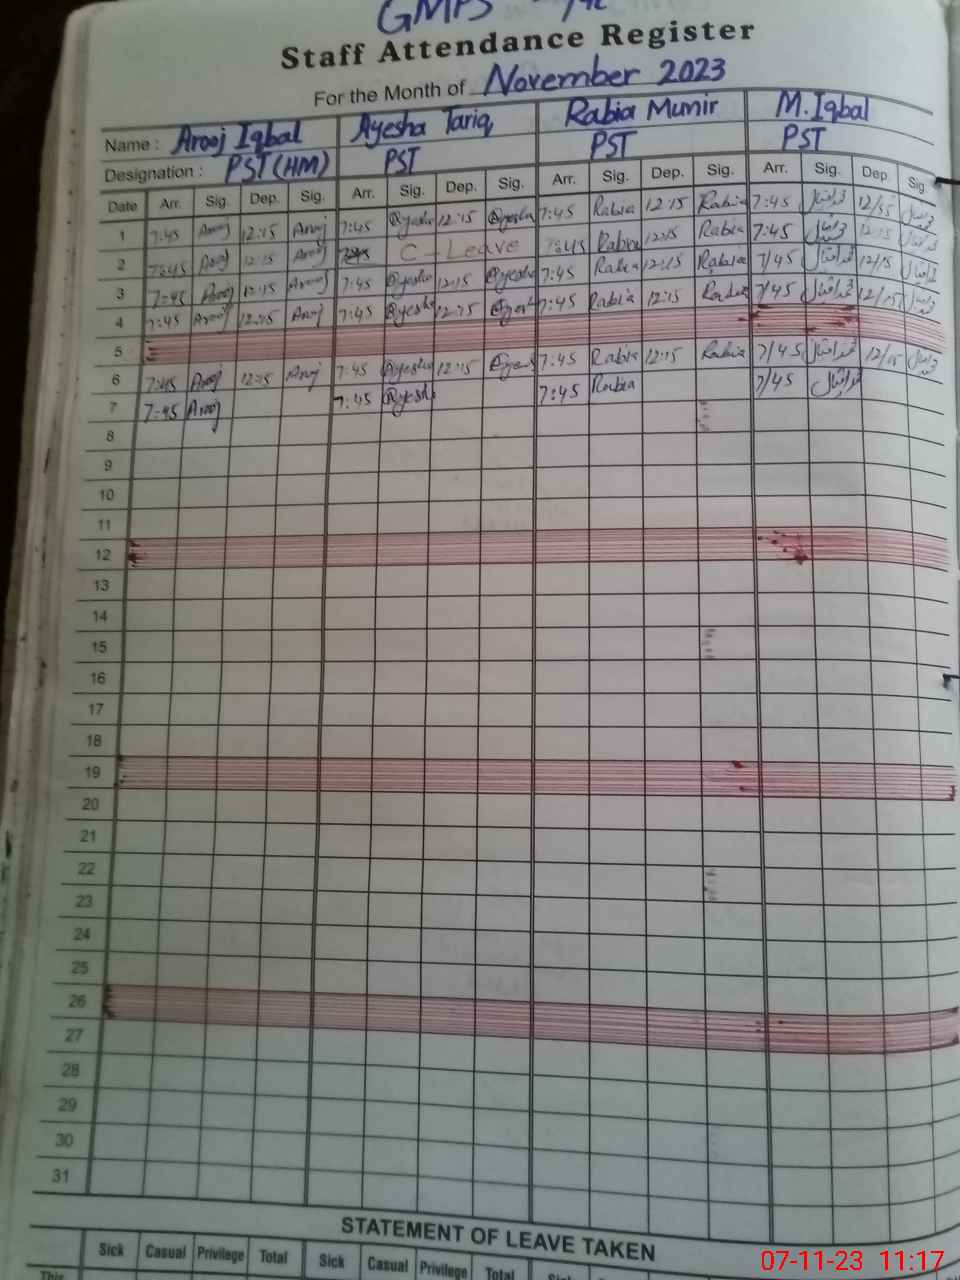 GMPS
Staff Attendance Register
For the Month of November 2023
Name : Arooj Iqbal Ayesha Tariq Rabia Munir M. Iqbal
Designation : PST (HM) PST PST PST
Date Arr. Sig. Dep. Sig. Arr. Sig. Dep. Sig. Arr. Sig. Dep. Sig. Arr. Sig. Dep. Sig.
1 7:45 Arooj 12:15 Arooj 7:45 Ayesha 12:15 Ayesha 7:45 Rabia 12:15 Rabia 7:45
2 7:45 Arooj 12:15 Arooj C-Leave 7:45 Rabia 12:15 Rabia 7:45 12:15
3 7:45 Arooj 12:15 Arooj 7:45 Ayesha 12:15 Ayesha 7:45 Rabia 12:15 Rabia 7/45 12/15
4 7:45 Arooj 12:15 Arooj 7:45 Ayesha 12:15 7:45 Rabia 12:15 Rabia 7/45 12/15
5
6 7:45 Arooj 12:15 Arooj 7:45 Ayesha 12:15 7:45 Rabia 12:15 Rabia 7/45 12/15
7 7:45 Arooj 7:45 Ayesha 7:45 Rabia 7/45
8
9
10
11
12
13
14
15
16
17
18
19
20
21
22
23
24
25
26
27
28
29
30
31
STATEMENT OF LEAVE TAKEN
Sick Casual Privilege Total Sick Casual Privilege Total Sick
This
07-11-23 11:17